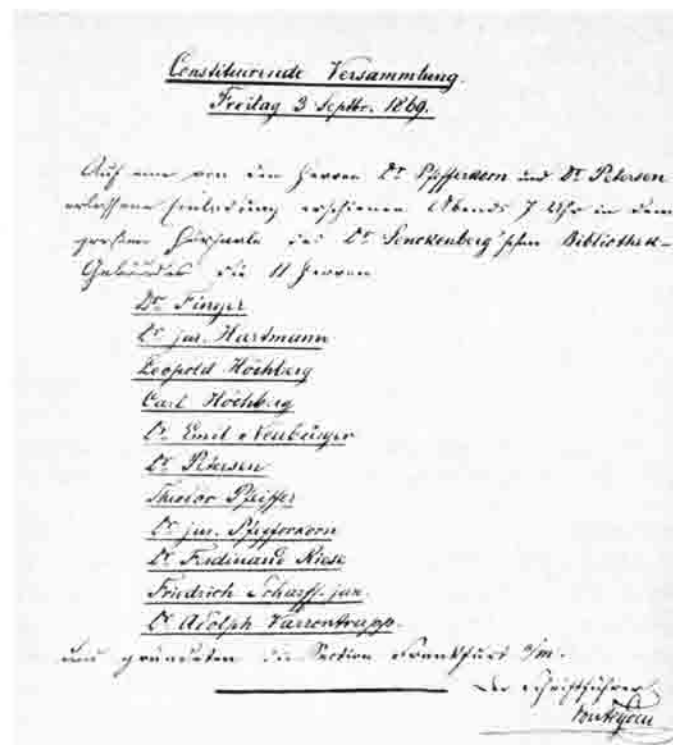 Constituirende Versammlung.
Freitag 3 Septbr. 1869.
Auf eine von den Herren Dr Pfefferkorn und Dr Petersen
erlassene Einladung erschienen Abends 7 Uhr in dem
grossen Hörsaale des Dr Senckenberg'schen Bibliothek-
Gebäudes die 11 Herren
Dr Finger
Dr jur. Hartmann
Leopold Höchberg
Carl Höchberg
Dr Emil Neubürger
Dr Petersen
Theodor Pfeiffer
Dr jur. Pfefferkorn
Dr Ferdinand Riese
Friedrich Scharff jun.
Dr Adolph Varrentrapp.
und gründeten die Section Frankfurt a/m.
Der Schriftführer